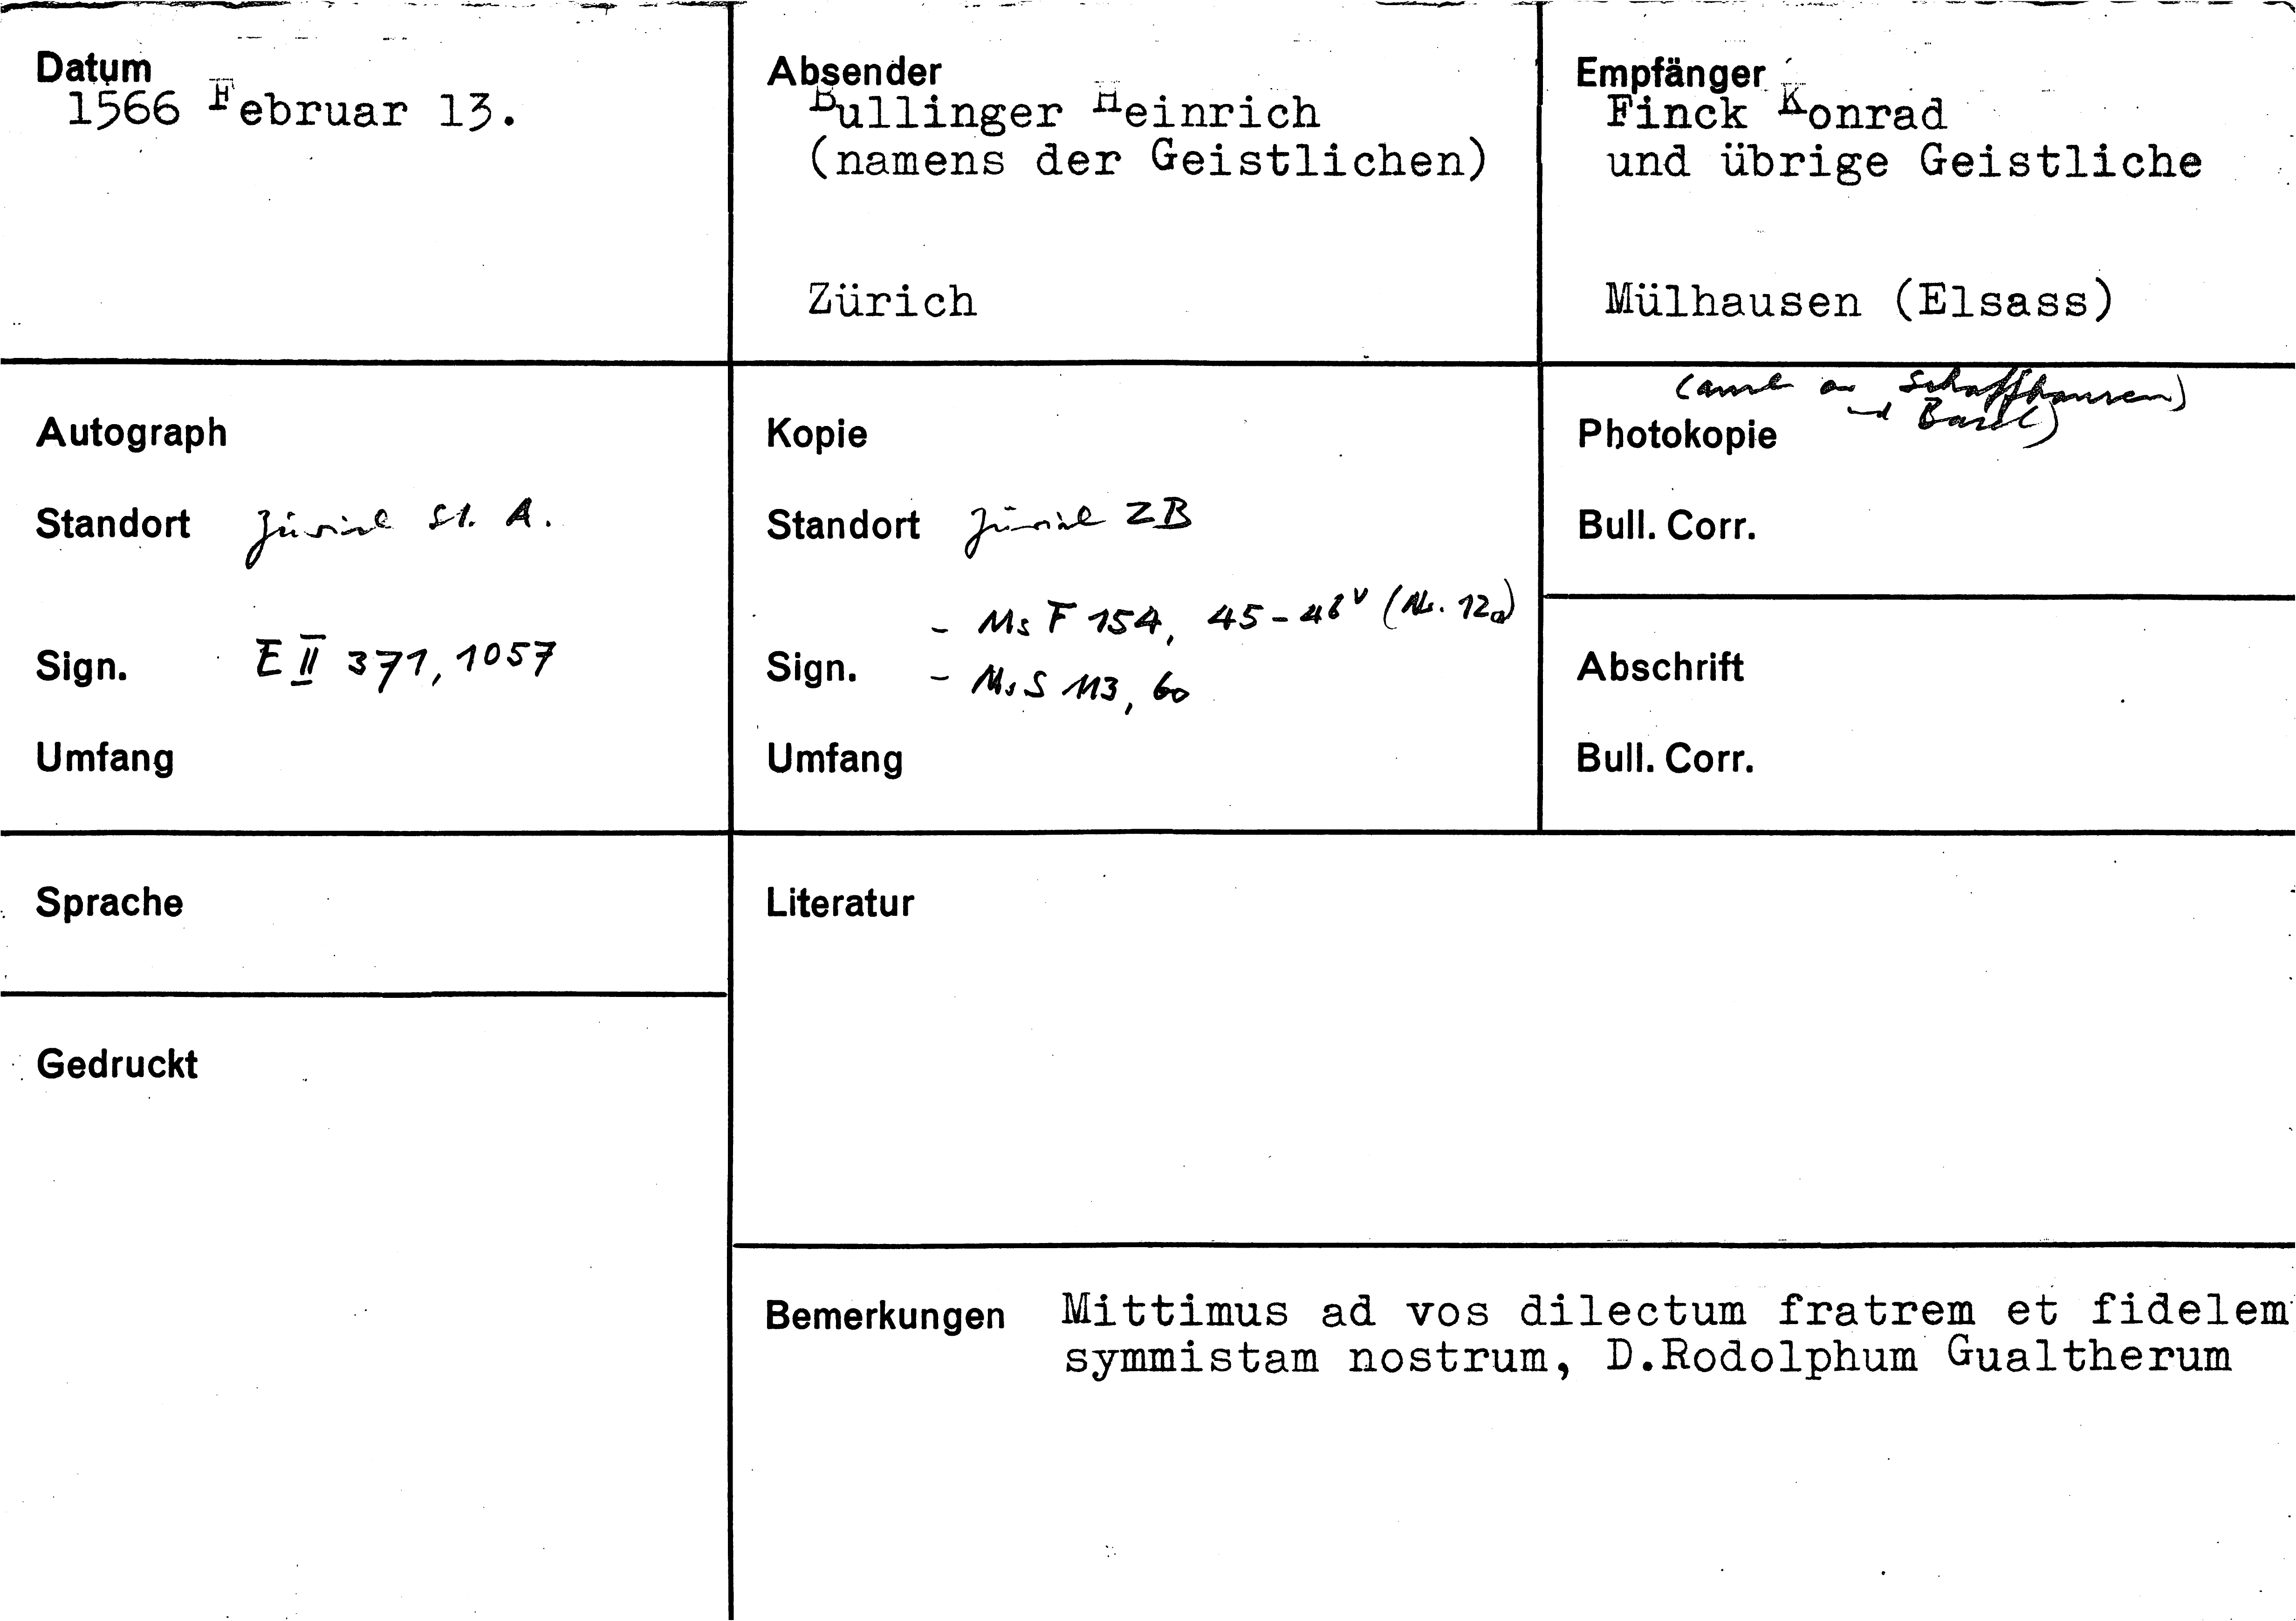 Datum
1566 Februar 13.
Absender
Bullinger Heinrich
(namens der Geistlichen)
Zürich
Empfänger
Finck Konrad
und übrige Geistliche
Mülhausen (Elsass)
Autograph
Standort Zürich St. A.
Sign. E II 371, 1057
Umfang
Kopie
Standort Zürich ZB
- Ms F 154, 45-46v (Nr. 12a)
Sign. - Ms S 113, 60
Umfang
(auch an Schaffhausen)
und Basel)
Photokopie
Bull. Corr.
Abschrift
Bull. Corr.
Sprache
Literatur
Gedruckt
Bemerkungen Mittimus ad vos dilectum fratrem et fidelem
symmistam nostrum, D.Rodolphum Gualtherum